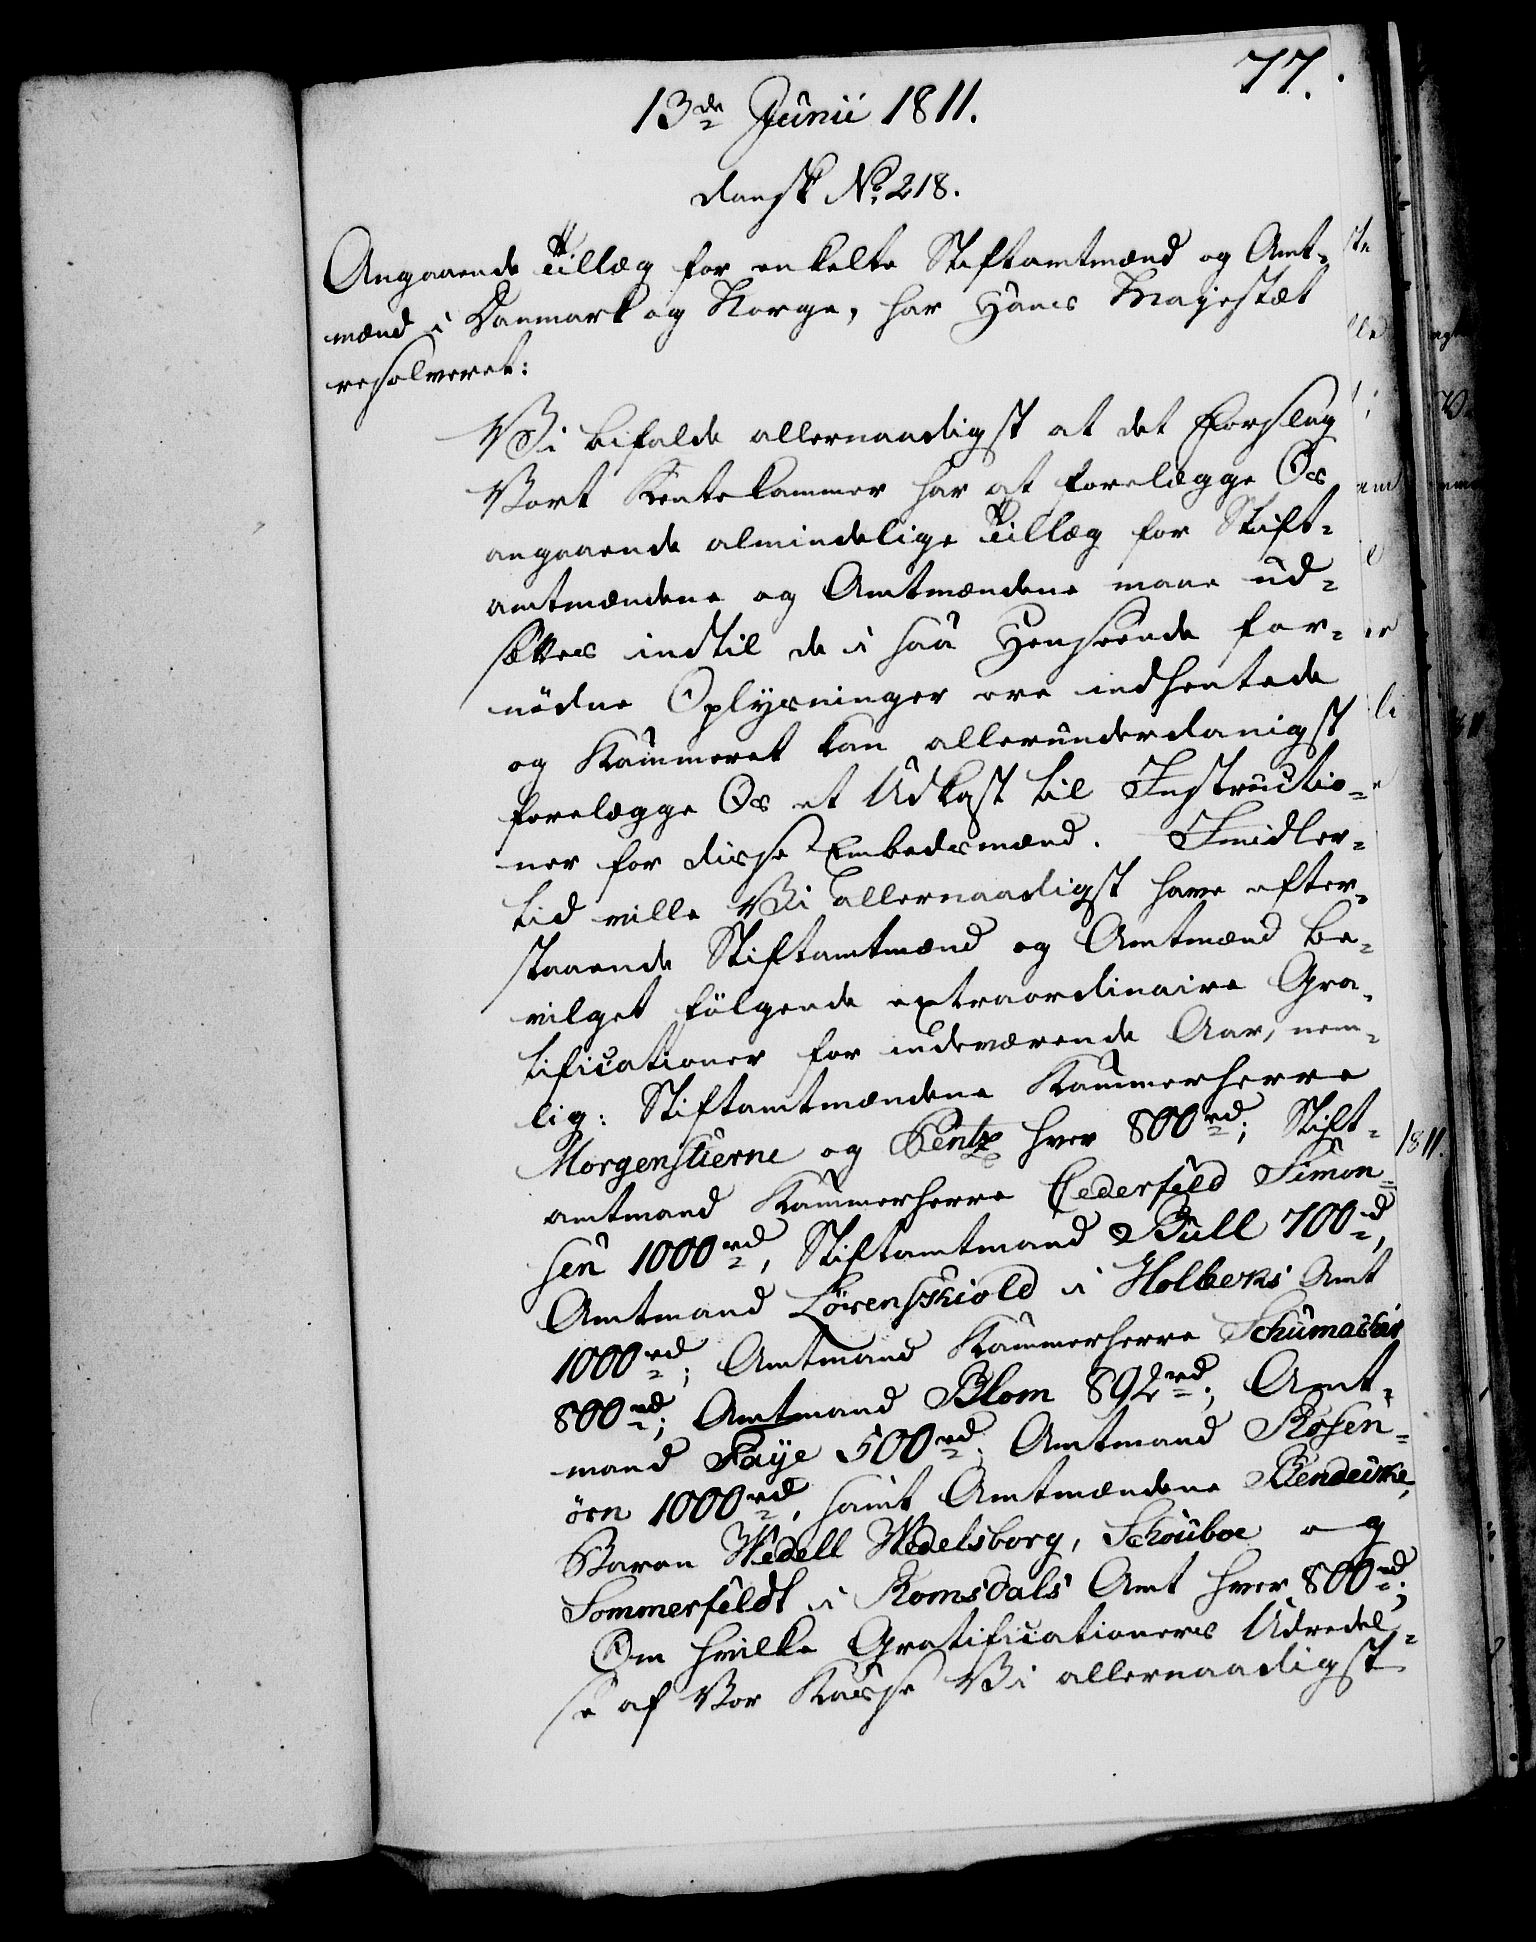 77.
13de Junii 1811.
dansk No. 218.
Angaaende Tillæg for enkelte Stiftamtmænd og Amt-
mænd i Danmark og Norge, har Hans Majestæt
resolveret:
Vi bifalde allernaadigst at det Forslag
Vort Rentekammer har at forelægge Os
angaaende almindelige Tillæg for Stift-
amtmændene og Amtmændene maae ud-
sættes indtil de i saa Henseende for-
nödne Oplysninger ere indhentede
og Kammeret kan allerunderdanigst
forelægge Os et Udkast til Instructio-
ner for disse Embedsmænd. Imidler-
tid ville Vi allernaadigst have efter-
staaende Stiftamtmænd og Amtmænd be-
vilget fölgende extraordinaire Gra-
tificationer for indeværende Aar, nem-
lig: Stiftamtmændene Kammerherre
Morgenstierne og Bentz hver 800rd; Stift-
amtmand Kammerherre Cederfeld Simon-
sen 1000rd, Stiftamtmand Bull 700rd,
Amtmand Lövenskiold i Holbeks Amt
1000rd; Amtmand Kammerherre Schumacher
800rd; Amtmand Blom 892rd; Amt-
mand Faye 500rd; Amtmand Rosen-
örn 1000rd, samt Amtmændene Bendeike,
Baron Wedell Wedelsborg, Schouboe og
Sommerfeldt i Romsdals Amt hver 800rd;
Om hvilke Gratificationers Udredel-
se af Vor Kasse Vi allernaadigst
1811.